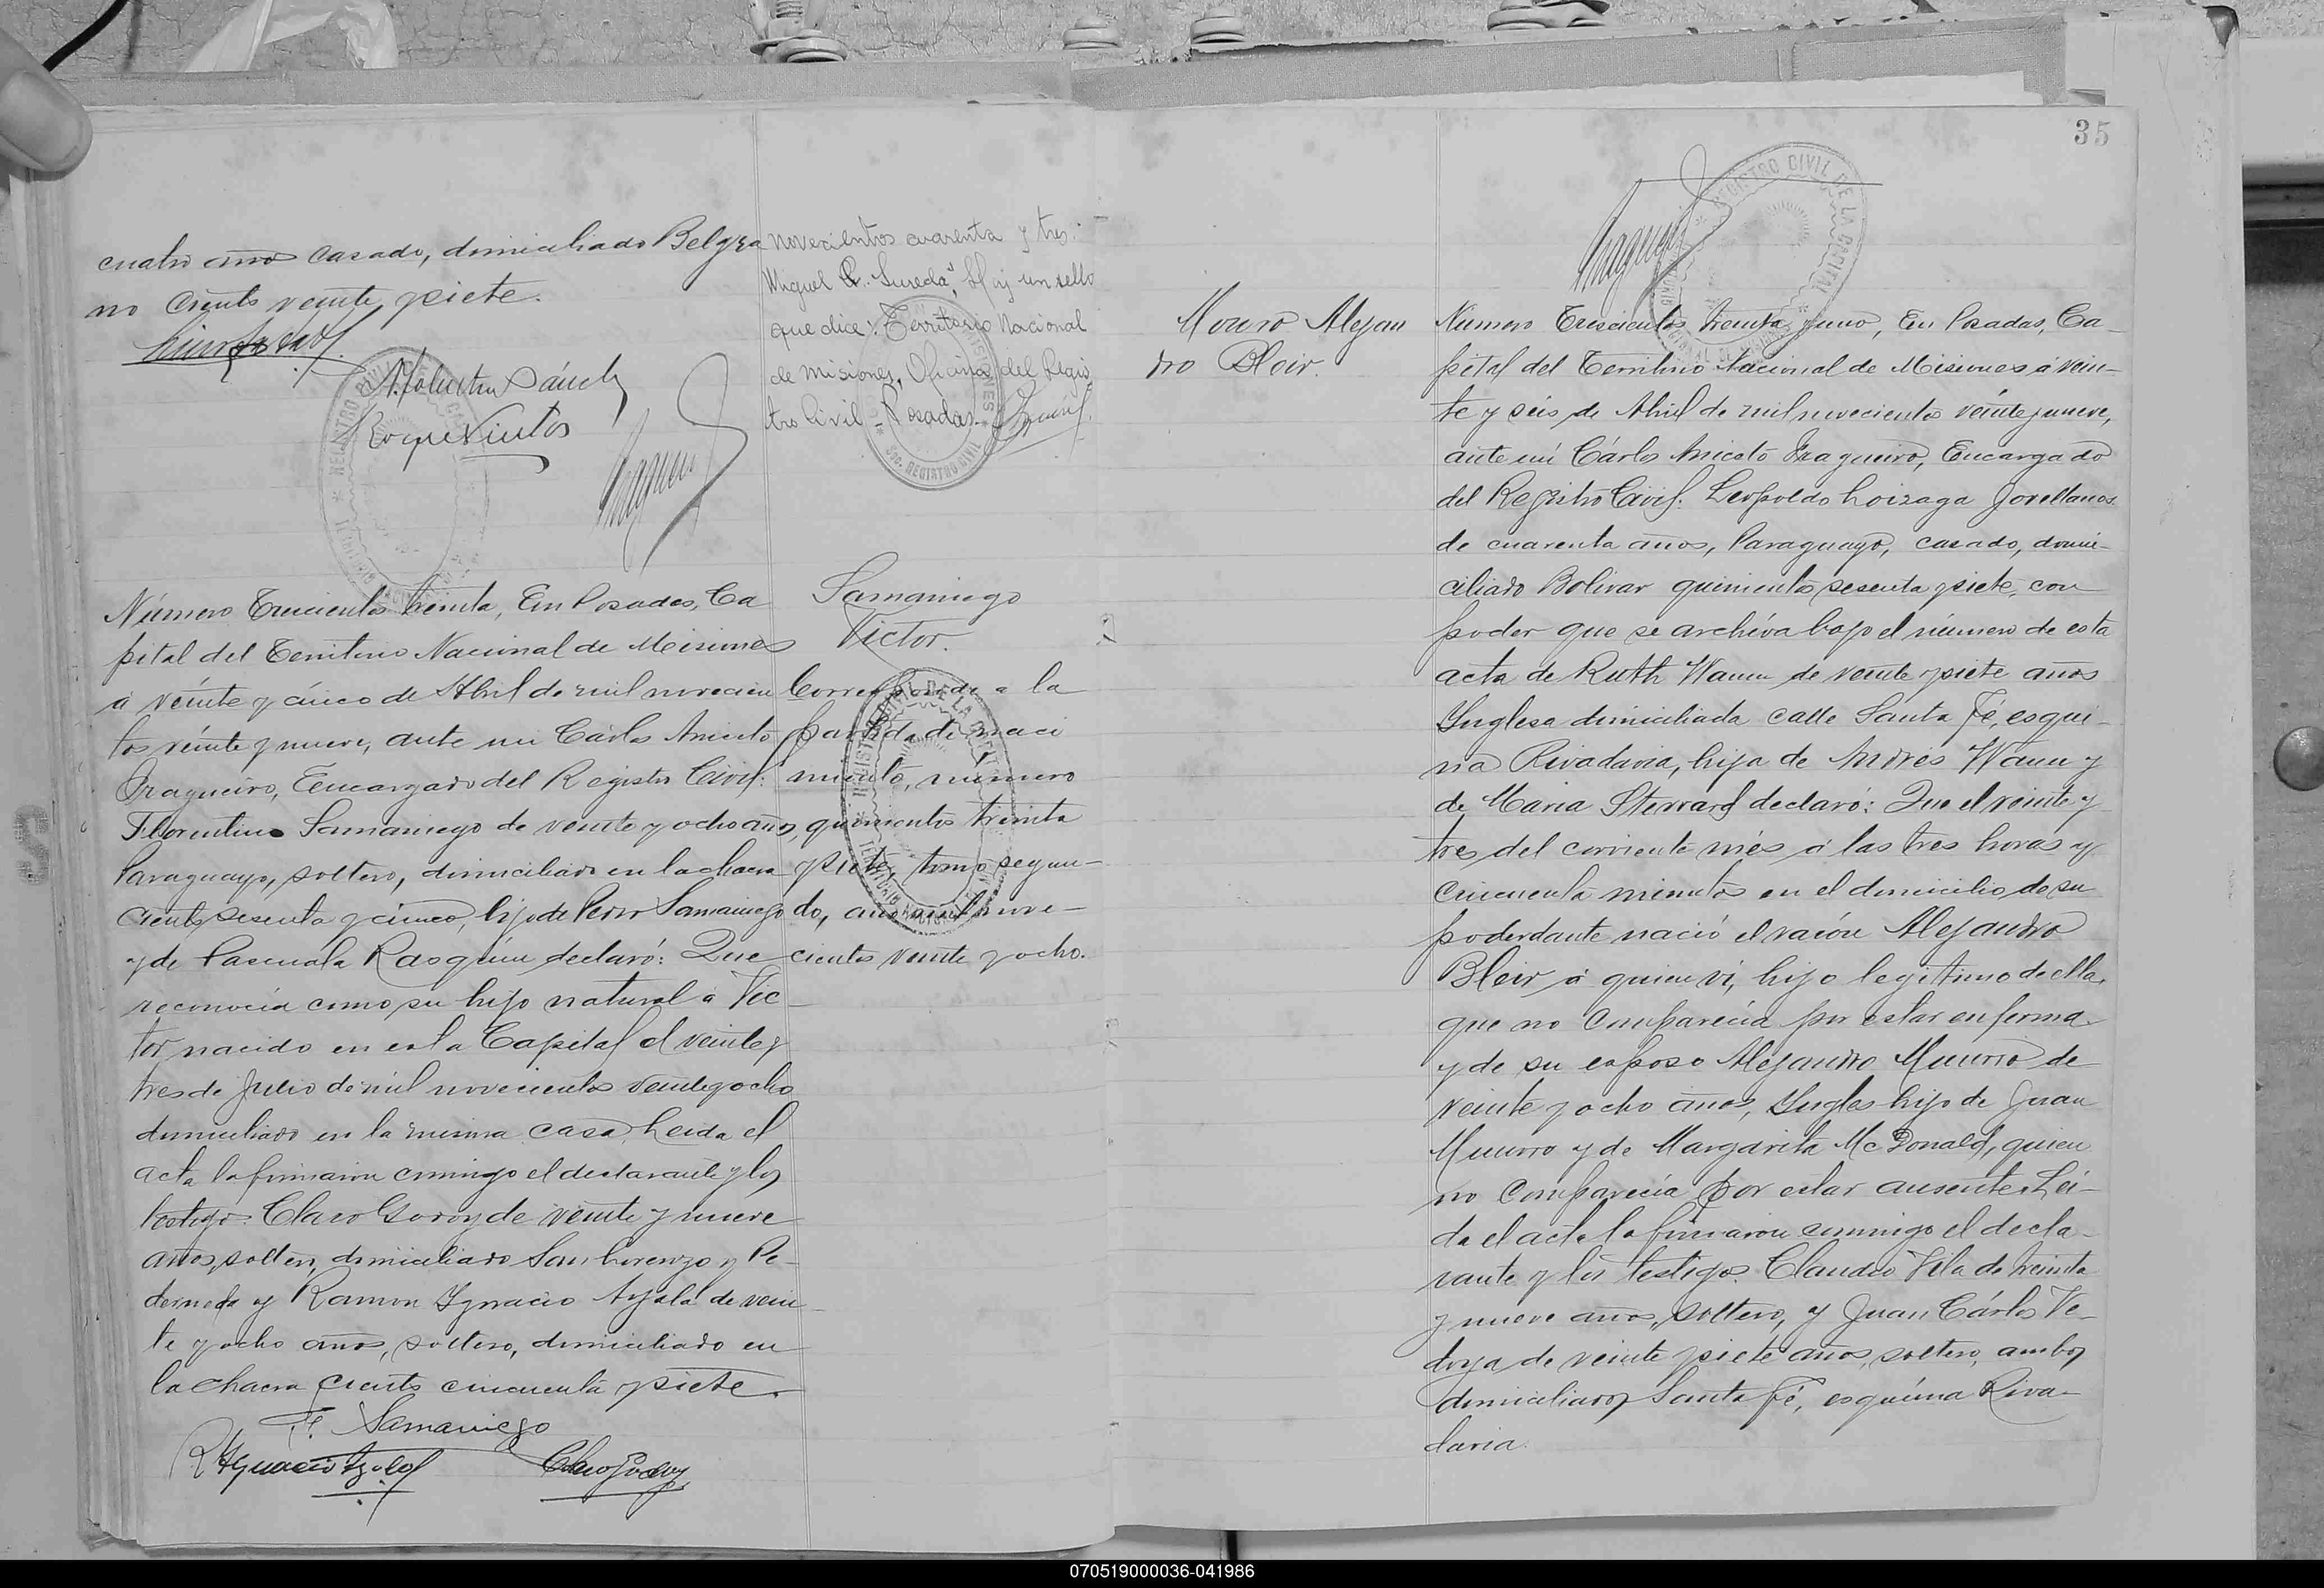 cuatro años casado, domiciliado Belgra
no ciento veinte y siete.
Roque
Número Trescientos treinta, En Posadas, Ca
pital del Territorio Nacional de Misiones
á veinte y cinco de Abril de mil novecien
tos veinte y nueve, ante mi Cárlos Aniceto
Fragueiro, Encargado del Registro Civil:
Florentino Samaniego de veinte y ocho años,
Paraguayo, soltero, domiciliado en la chacra
ciento sesenta y cinco, hijo de Pedro Samaniego
y de Pascuala Rasquin declaró: Que
reconocía como su hijo natural á Víc
tor nacido en esta Capital el veinte y
tres de Julio de mil novecientos veinte y ocho
domiciliado en la misma casa. Leida el
acta la firmaron conmigo el declarante y los
testigos Claro Godoy de veinte y nueve
años, soltero, domiciliado San Lorenzo y Pe-
derneda y Ramon Ygnacio Ayala de vein-
te y ocho años, soltero, domiciliado en
la chacra ciento cincuenta y siete.
F. Samaniego
R Ygnacio Ayala
Claro Godoy
novecientos cuarenta y tres.
Miguel Sureda". Hay un sello
que dice: Territorio Nacional
de Misiones, Oficina del Regis
tro Civil - Posadas.
Samaniego
Victor.
Corresponde a la
partida de naci
miento, número
quinientos treinta
y siete, tomo segun-
do, año mil nove-
cientos veinte y ocho.
35
REGISTRO CIVIL DE LA CAPITAL
Mouro Alejan
dro Bleir.
Número Trescientos treinta y uno, En Posadas, Ca-
pital del Territorio Nacional de Misiones á vein-
te y seis de Abril de mil novecientos veinte y nueve,
ante mí Cárlos Aniceto Fragueiro, Encargado
del Registro Civil: Leopoldo Loizaga Jovellanos
de cuarenta años, Paraguayo, casado, domi-
ciliado Bolivar quinientos sesenta y siete, con
poder que se archiva bajo el número de esta
acta de Ruth Wann de veinte y siete años
Ynglesa domiciliada calle Santa Fé, esqui-
na Rivadavia, hija de Andrés Wann y
de Maria declaró: Que el veinte y
tres del corriente més á las tres horas y
cincuenta minutos en el domicilio de su
poderdante nació el varón Alejandro
Bleir á quien ví, hijo legítimo de ella,
que no comparecía por estar enferma
y de su esposo Alejandro Munro de
veinte y ocho años, Yngles hijo de Juan
Munro y de Margarita McDonald, quien
no comparecía por estar ausente. Léi-
da el acta la firmaron conmigo el decla-
rante y los testigos Claudio Vila de treinta
y nueve años, soltero, y Juan Cárlos Ve-
doya de veinte y siete años, soltero, ambos
domiciliados Santa Fé, esquina Riva-
davia.
070519000036-041986